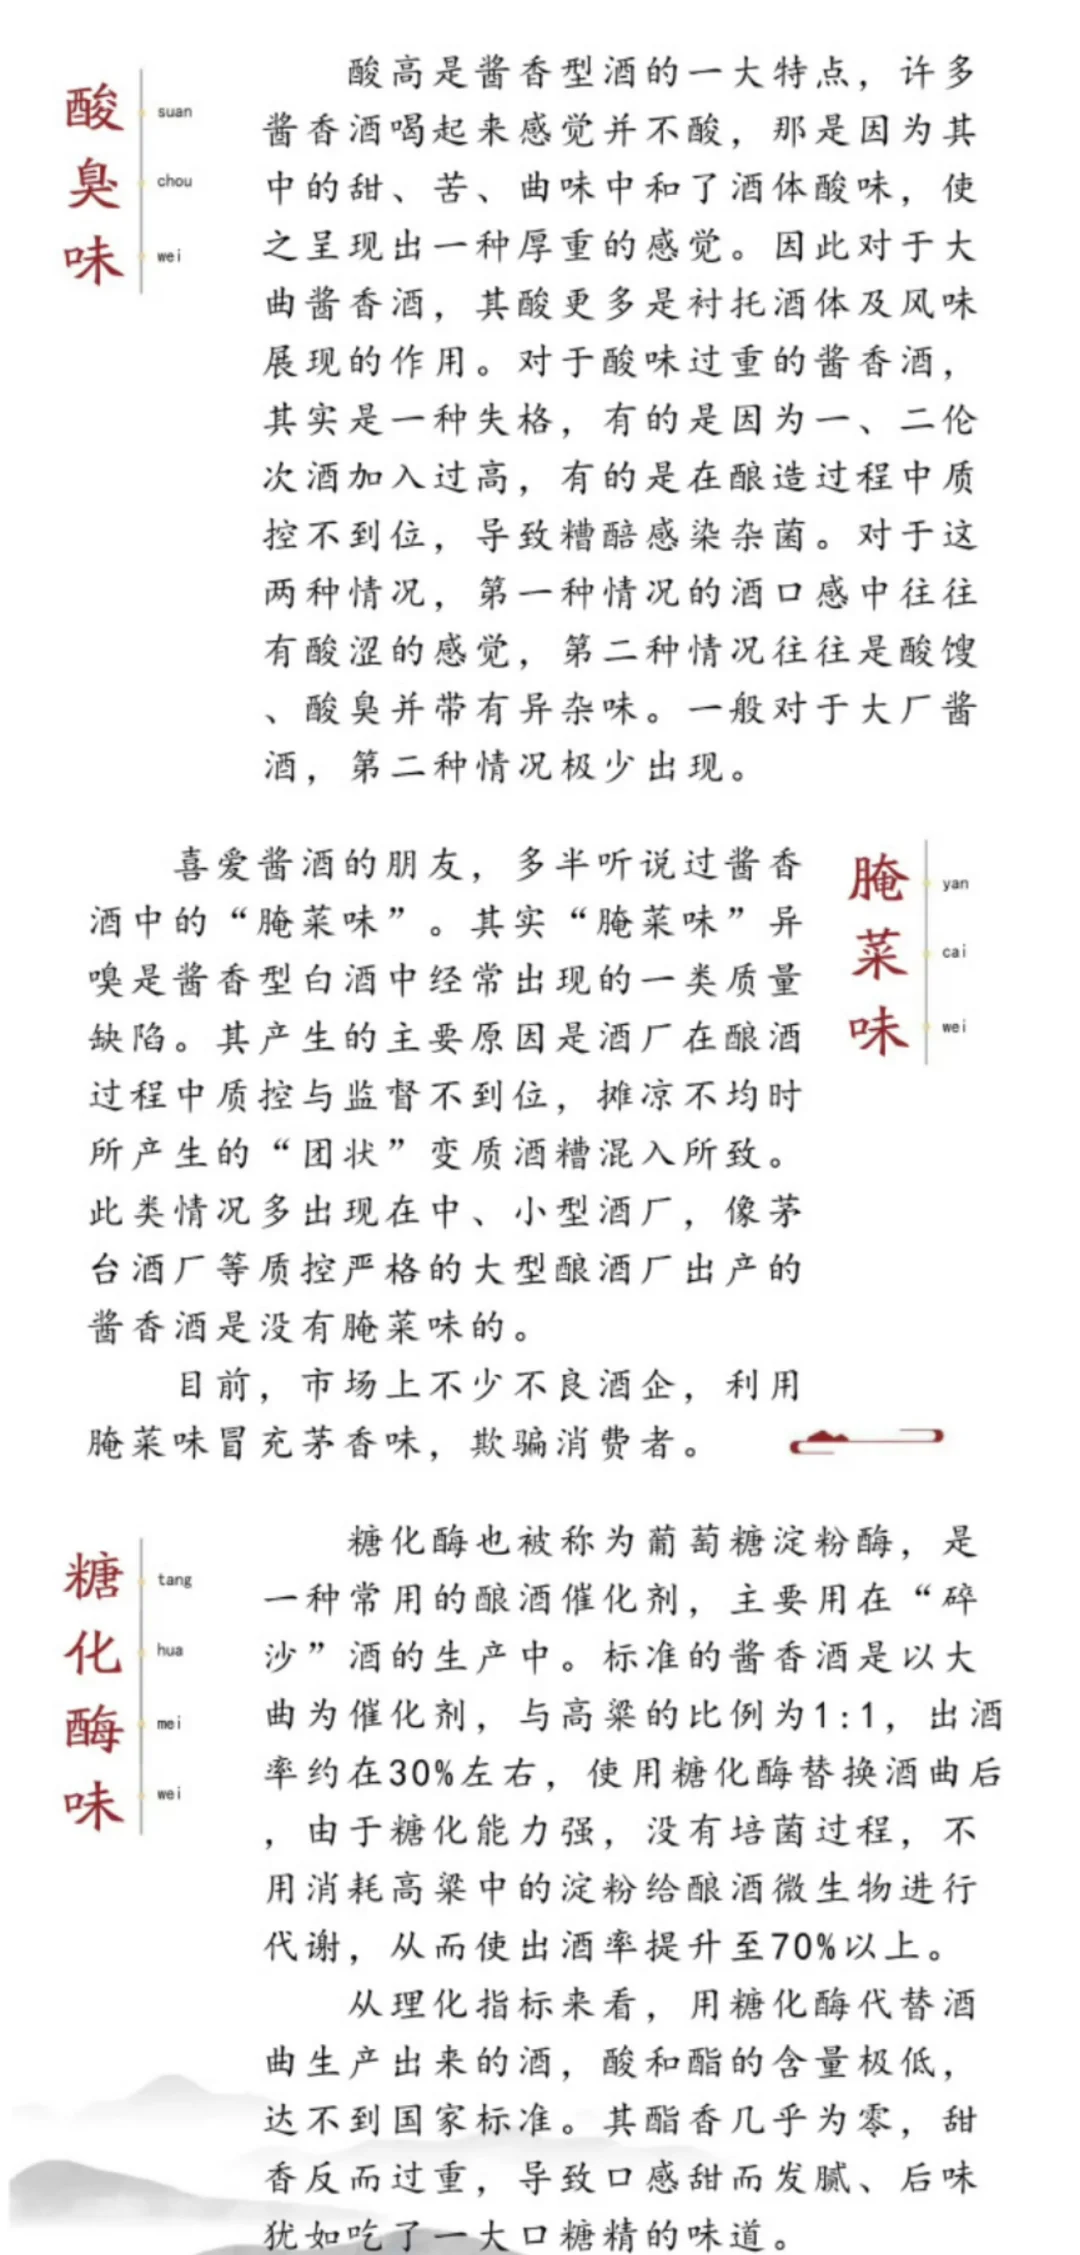 酸臭味
suan
chou
wei
酸高是酱香型酒的一大特点，许多
酱香酒喝起来感觉并不酸，那是因为其
中的甜、苦、曲味中和了酒体酸味，使
之呈现出一种厚重的感觉。因此对于大
曲酱香酒，其酸更多是衬托酒体及风味
展现的作用。对于酸味过重的酱香酒，
其实是一种失格，有的是因为一、二伦
次酒加入过高，有的是在酿造过程中质
控不到位，导致糟醅感染杂菌。对于这
两种情况，第一种情况的酒口感中往往
有酸涩的感觉，第二种情况往往是酸馊
、酸臭并带有异杂味。一般对于大厂酱
酒，第二种情况极少出现。
腌菜味
yan
cai
wei
喜爱酱酒的朋友，多半听说过酱香
酒中的“腌菜味”。其实“腌菜味”异
嗅是酱香型白酒中经常出现的一类质量
缺陷。其产生的主要原因是酒厂在酿酒
过程中质控与监督不到位，摊凉不均时
所产生的“团状”变质酒糟混入所致。
此类情况多出现在中、小型酒厂，像茅
台酒厂等质控严格的大型酿酒厂出产的
酱香酒是没有腌菜味的。
目前，市场上不少不良酒企，利用
腌菜味冒充茅香味，欺骗消费者。
糖化酶味
tang
hua
mei
wei
糖化酶也被称为葡萄糖淀粉酶，是
一种常用的酿酒催化剂，主要用在“碎
沙”酒的生产中。标准的酱香酒是以大
曲为催化剂，与高粱的比例为1:1，出酒
率约在30%左右，使用糖化酶替换酒曲后
，由于糖化能力强，没有培菌过程，不
用消耗高粱中的淀粉给酿酒微生物进行
代谢，从而使出酒率提升至70%以上。
从理化指标来看，用糖化酶代替酒
曲生产出来的酒，酸和酯的含量极低，
达不到国家标准。其酯香几乎为零，甜
香反而过重，导致口感甜而发腻、后味
犹如吃了一大口糖精的味道。